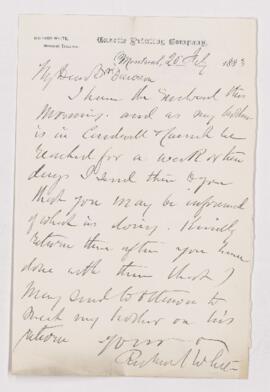 Richard White,
Managing Director.
Gazette Printing Company,
Montreal, 20 July 188
My Dear Mr
I have the enclosed this
morning. and as my brother
is in Cardwell & cannot be
reached for a week or ten
days I send them to you
that you may be informed
of what is doing. Kindly
return them after you have
done with them that I
may send to Ottawa to
meet my brother on his
return
Yours
Richard White